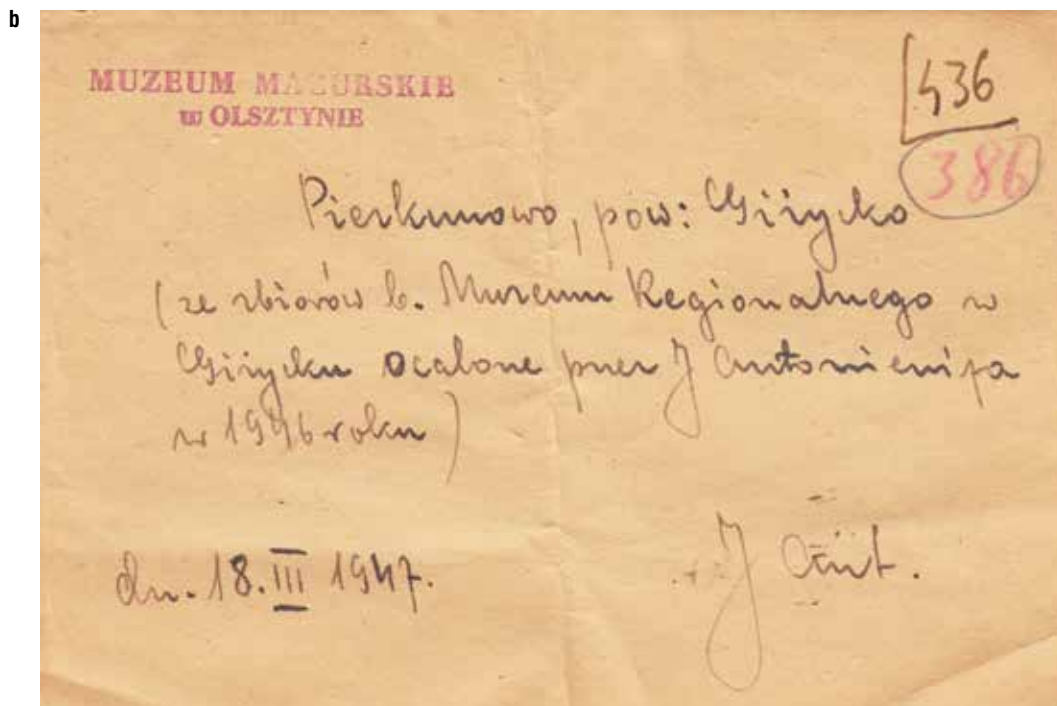 b
MUZEUM MAZURSKIE
w OLSZTYNIE
436
386
Pierkunowo, pow: Giżycko
(ze zbiorów b. Muzeum Regionalnego w
Giżycku ocalone przez J Antoniewicza
w 1946 roku)
dn. 18. III 1947.
J Ant.